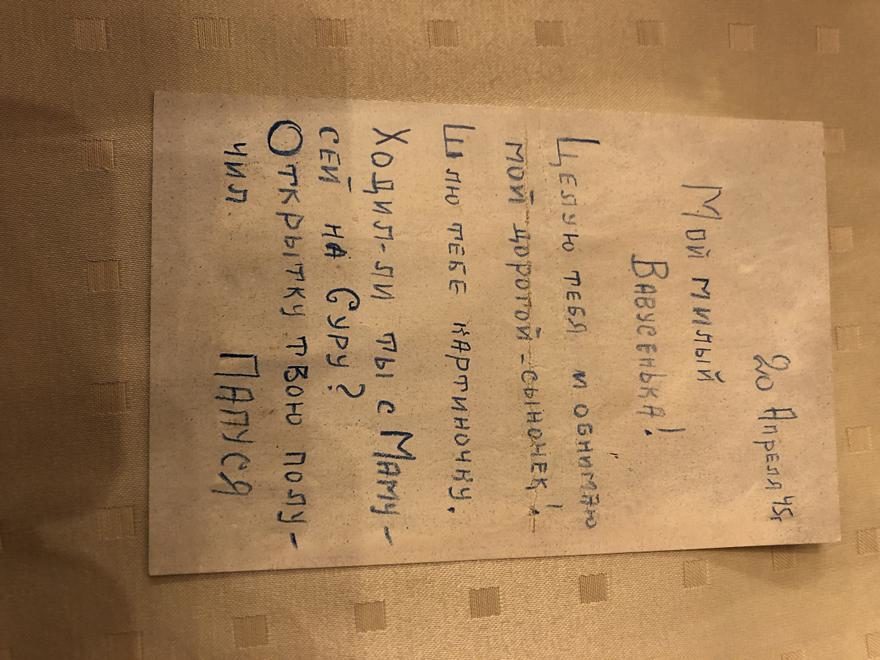 20 Апреля 45г
Мой милый
Вавусенька!
Целую тебя и обнимаю
мой дорогой сыночек!
Шлю тебе картиночку.
Ходил-ли ты с Маму-
сей на Суру?
Открытку твою полу-
чил. Папуся